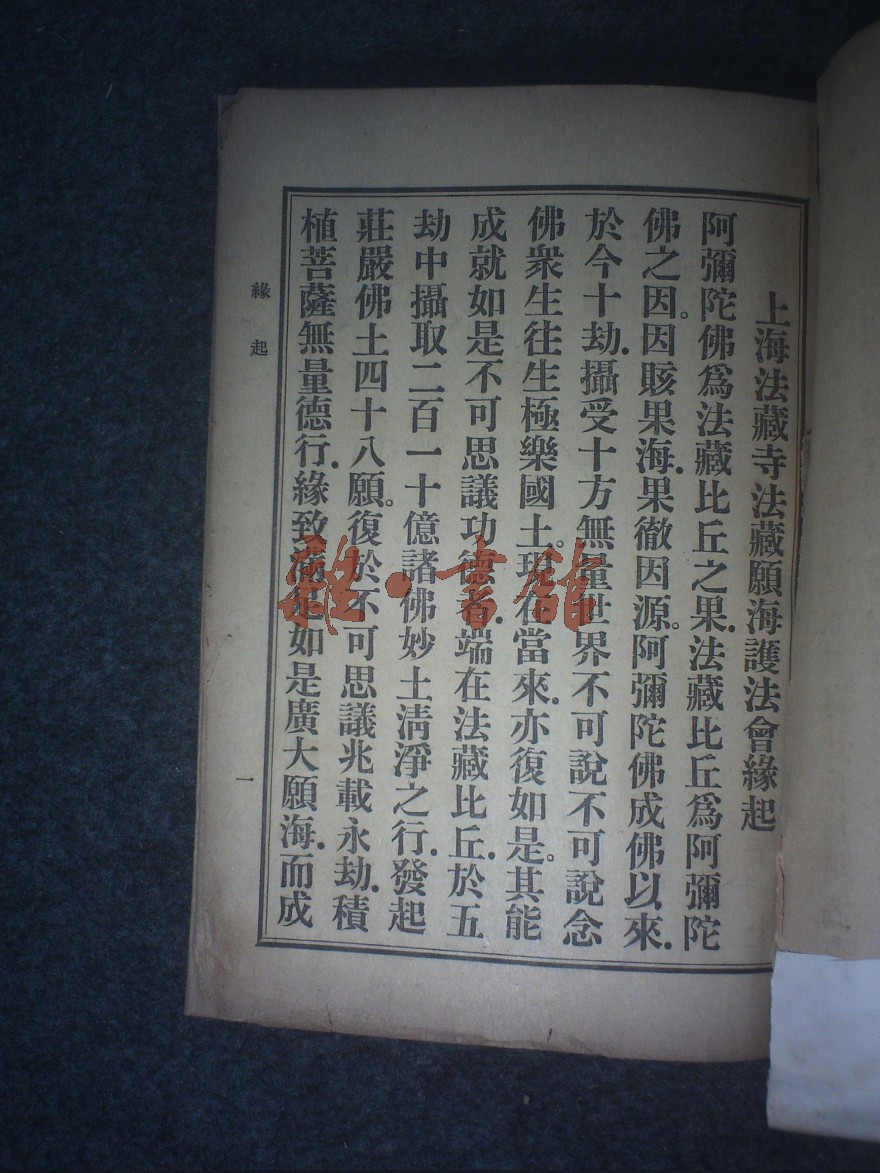 上海法藏寺法藏願海護法會緣起
阿彌陀佛爲法藏比丘之果.法藏比丘爲阿彌陀
佛之因。因賅果海.果徹因源。阿彌陀佛成佛以來.
於今十劫.攝受十方無量世界不可說不可說念
佛衆生往生極樂國土。現在當來.亦復如是。其能
成就如是不可思議功德者.端在法藏比丘.於五
劫中攝取二百一十億諸佛妙土淸淨之行.發起
莊嚴佛土四十八願。復於不可思議兆載永劫.積
植菩薩無量德行.緣致滿足如是廣大願海.而成
緣起
一
雜·書館